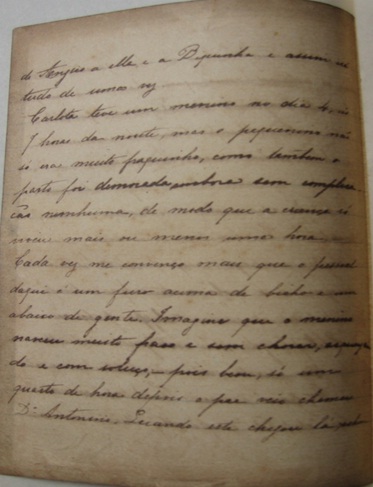 de Sergio a ella e a Pequenha e assim
tudo de uma vez
Carlota teve um menino no dia 4, ás
7 horas da noute, mas o pequenino não
só era muito fraquinho, como tambem o
parto foi demorado, embora sem complica
ção nenhuma, de modo que a criança só
viveu mais ou menos uma hora.
Cada vez me convenço mais que o pessoal
daqui é um furo acima de bicho e um
abaixo de gente. Imagine que o menino
nasceu muito fraco e sem chorar,
do e com soluço, – pois bem, só um
quarto de hora depois o pae veio chamar
Dr. Antonino. Quando este chegou lá